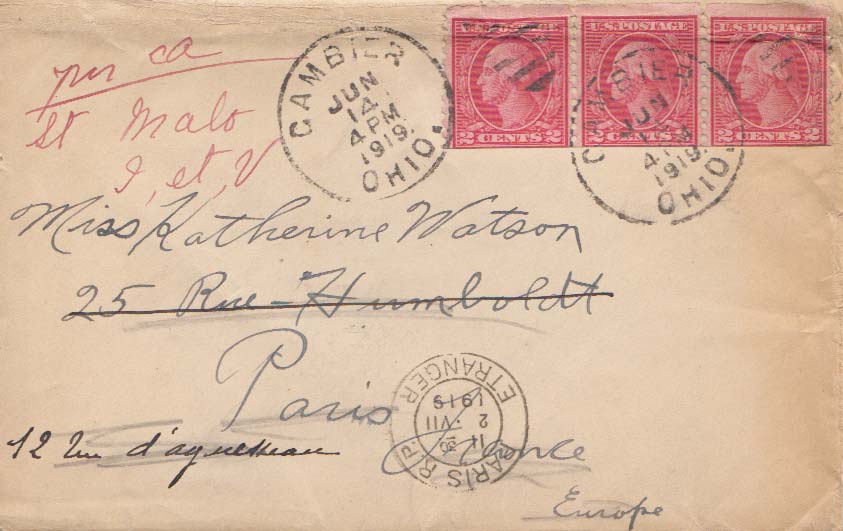 U.S. POSTAGE U.S. POSTAGE U.S. POSTAGE
2 CENTS 2 2 CENTS 2 2 CENTS 2
GAMBIER
JUN
14
4 PM
1919.
OHIO.
GAMBIER
JUN
4 PM
1919.
OHIO.
St Malo
I, et, V
Miss Katherine Watson
25 Rue Humboldt
Paris
12 Rue d'aguesseau
France
Europe
PARIS R.P.
11 30
2 VII
1919
ETRANGER